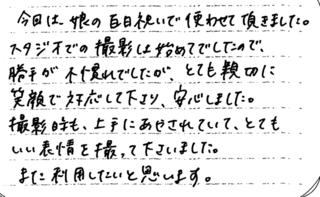 今回は娘の百日祝いで使わせて頂きました。
スタジオでの撮影は始めてでしたので、
勝手が不慣れでしたが、とても親切に
笑顔で対応して下さり、安心しました。
撮影時も、上手にあやされていて、とても
いい表情を撮って下さいました。
また利用したいと思います。